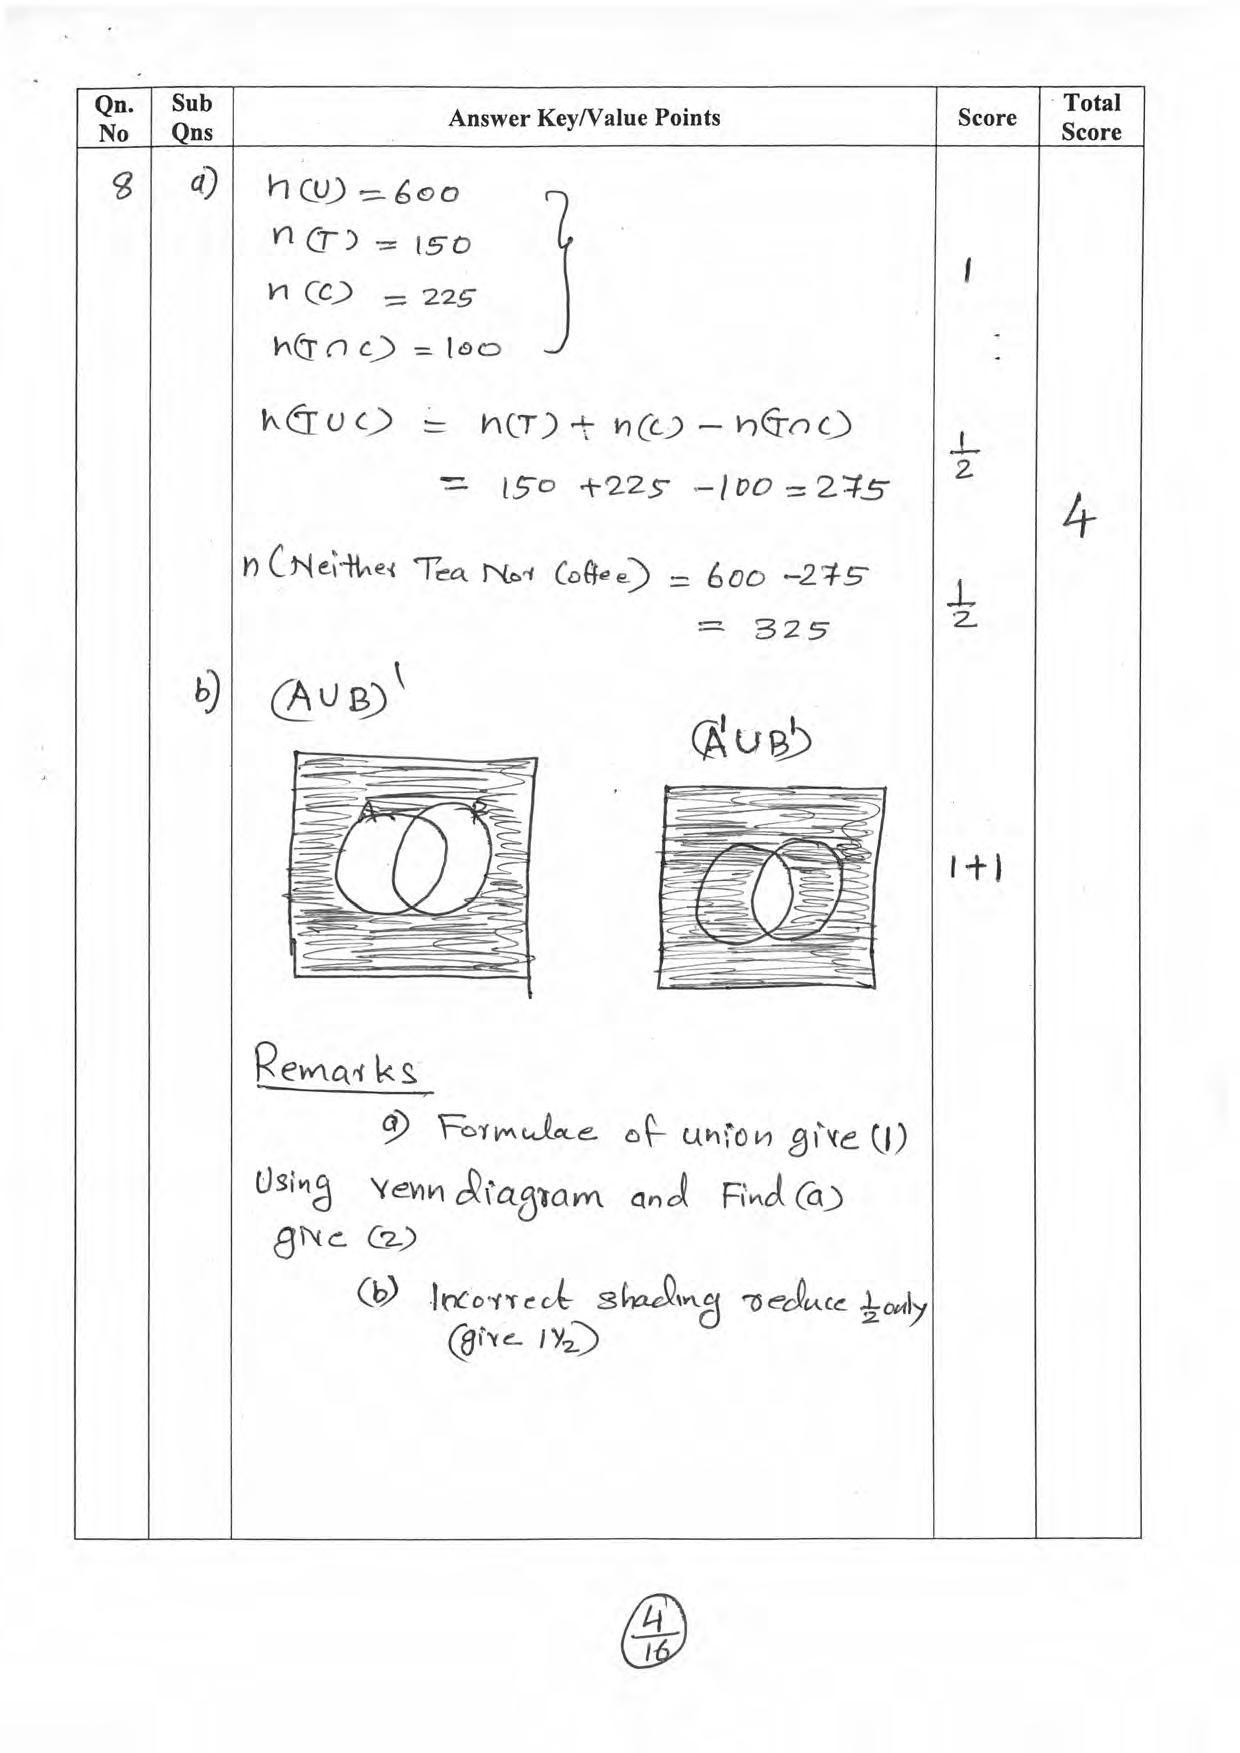 Qn. No Sub Qns Answer Key/Value Points Score Total Score
8 a) n(U) = 600
n(T) = 150
n(C) = 225
1
n(T∩C) = 100
n(T∪C) = n(T) + n(C) - n(T∩C)
1/2
= 150 +225 -100 = 275
4
n(Neither Tea Nor Coffee) = 600 -275
1/2
= 325
b) (A∪B)'
(A'∪B')
A B
B
1+1
Remarks
a) Formulae of union give (1)
Using venn diagram and Find (a)
give (2)
(b) Incorrect shading reduce 1/2 only
(give 1 1/2)
4/16